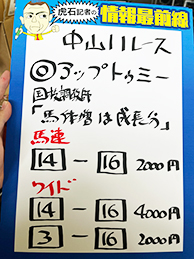 虎石記者の
情報最前線
中山11レース
◎アップトゥミー
国枝調教師
「馬体増は成長分」
馬連
14 － 16 2000円
ワイド
14 － 16 4000円
3 － 16 2000円